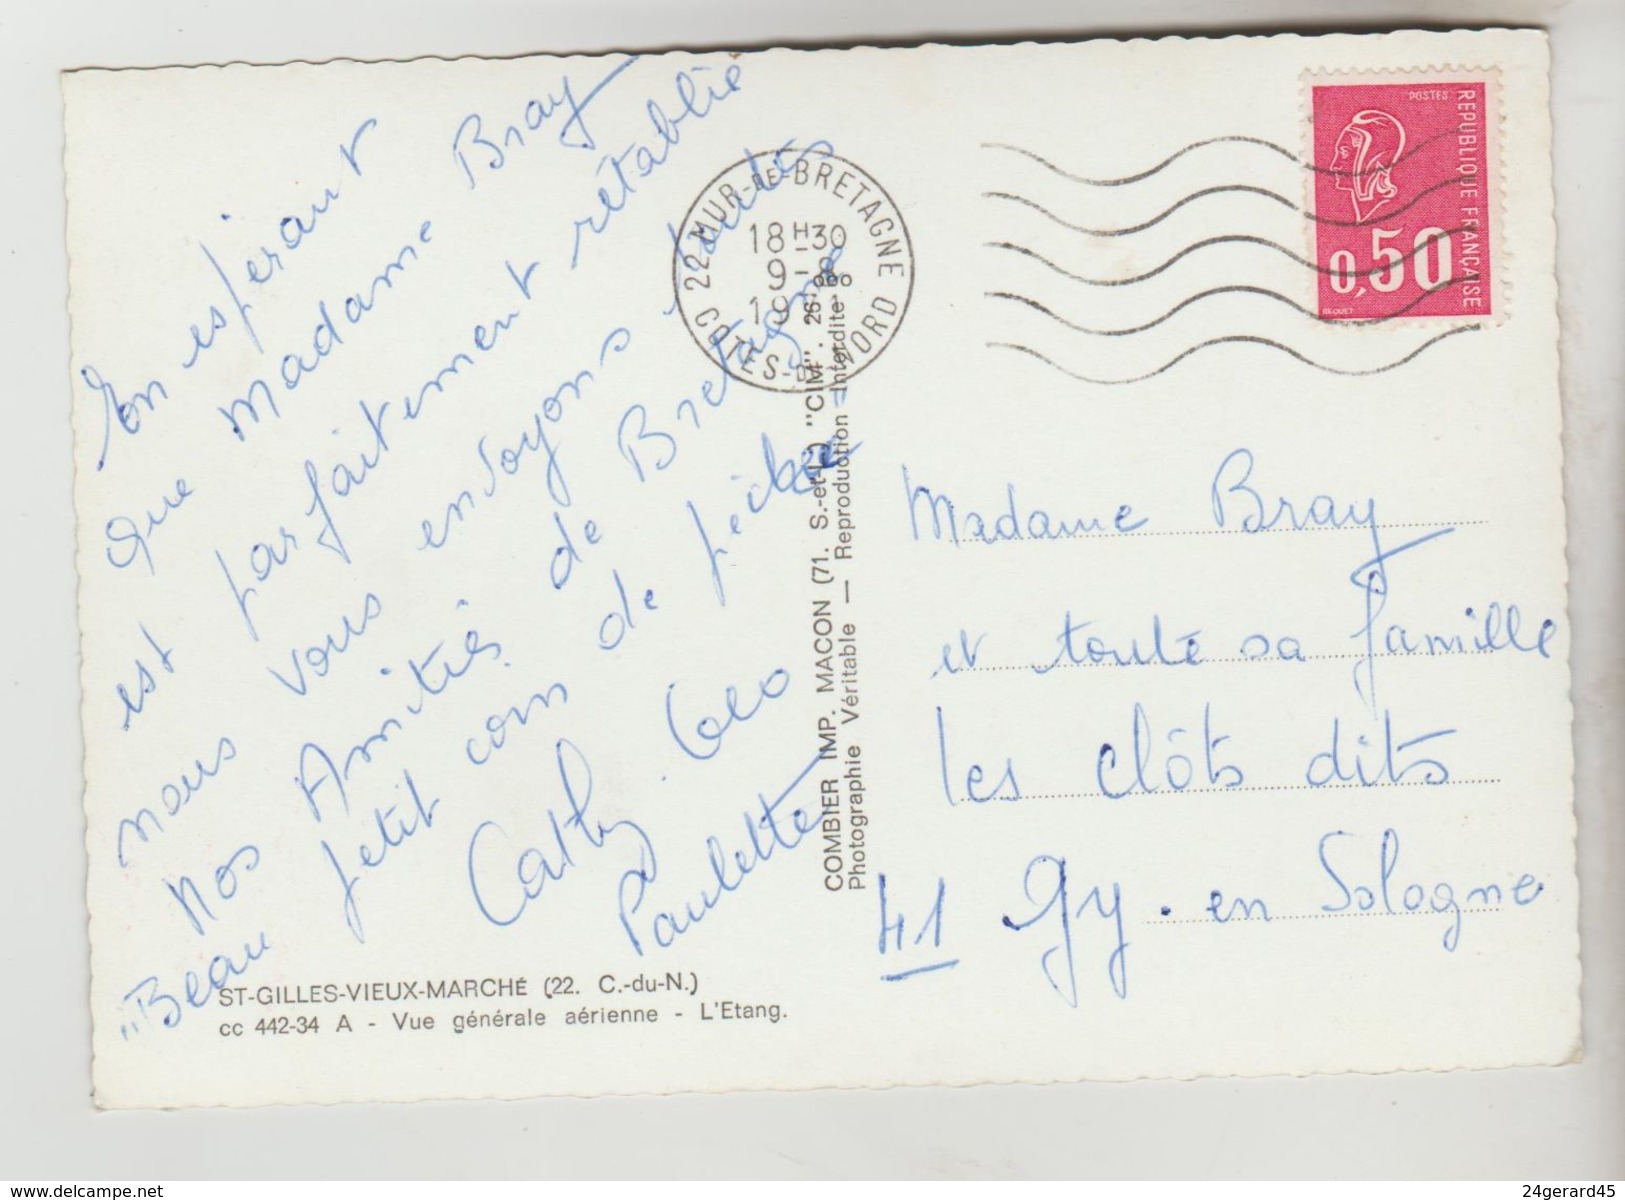 En espérant
que Madame Bray
est parfaitement rétablie
nous vous envoyons toutes
Nos Amitiés de Bretagne
"Beau petit coin de pêche
Cathy. Géo
Paulette
ST-GILLES-VIEUX-MARCHÉ (22. C.-du-N.)
cc 442-34 A - Vue générale aérienne - L'Etang.
COMBIER IMP. MACON (71. S.-et-L.) "CIM".
Photographie Véritable — Reproduction Interdite
22 MUR-DE-BRETAGNE
18H30
9-8
19
COTES-DU-NORD
POSTES
REPUBLIQUE FRANÇAISE
0,50
BEQUET
Madame Bray
et toute sa famille
les clôts dits
41 Gy. en Sologne
www.delcampe.net
24gerard45